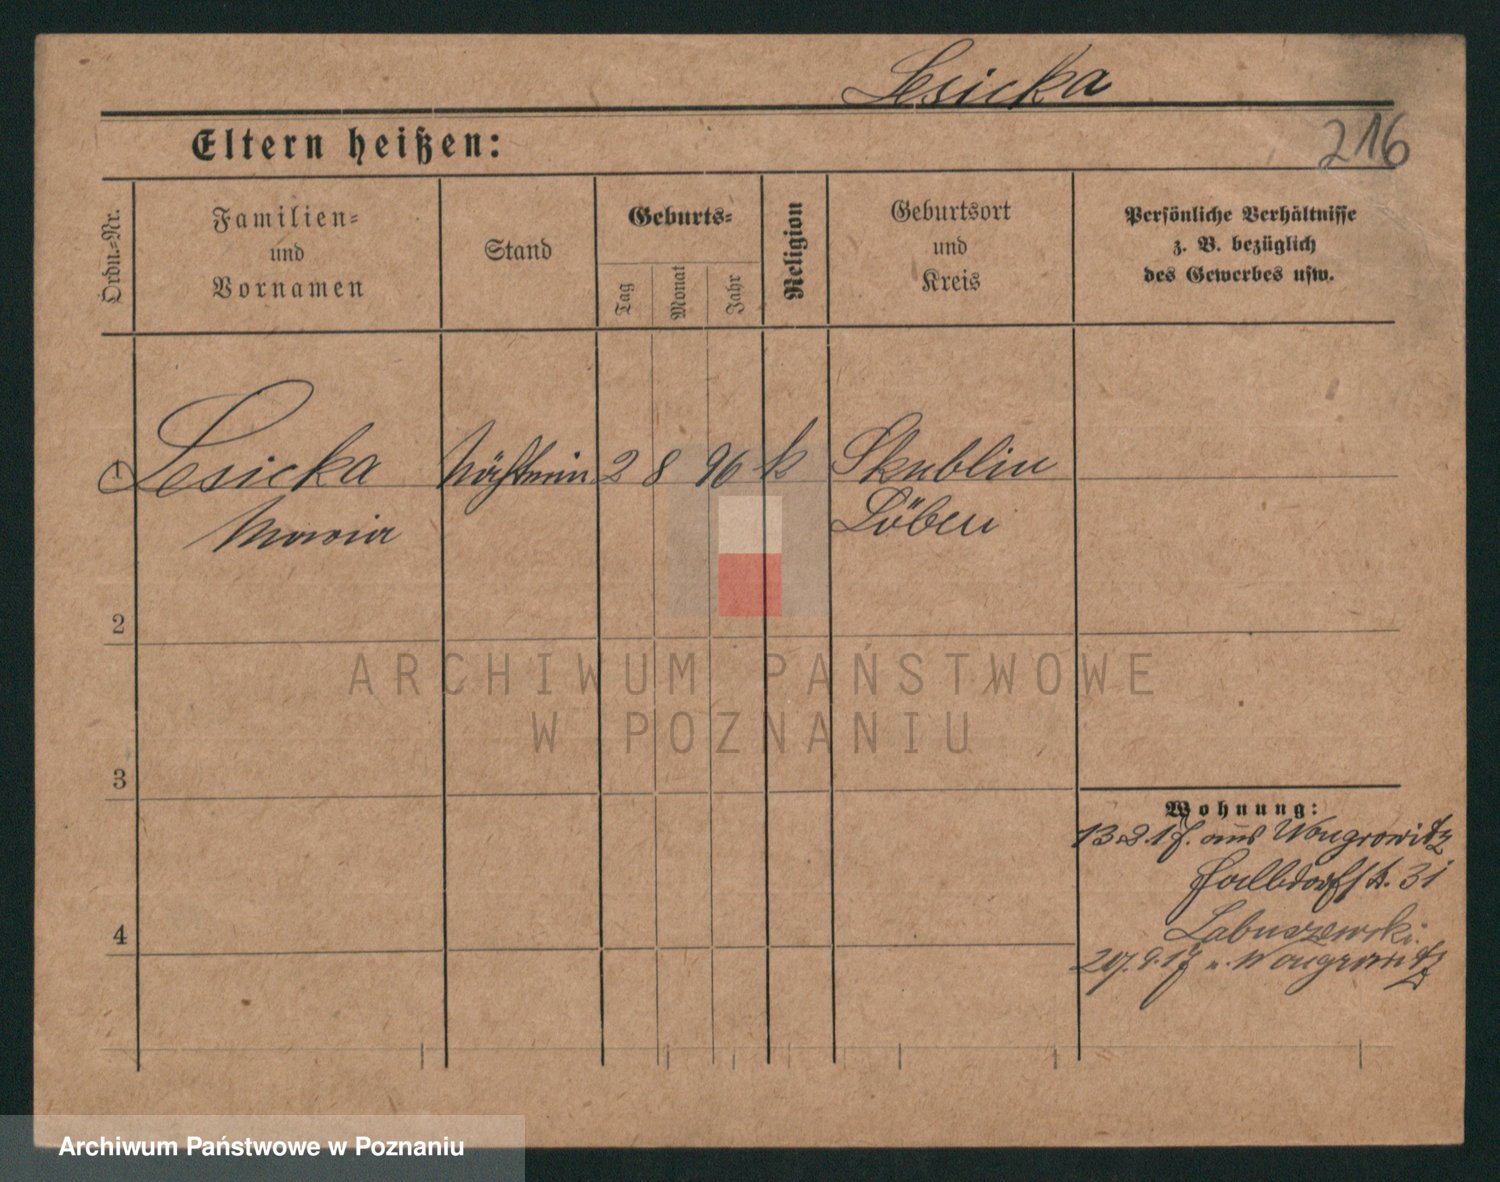 Lesicka
216
Eltern heißen:
Ordn.-Nr.
Familien-
und
Vornamen
Stand
Geburts-
Tag
Monat
Jahr
Religion
Geburtsort
und
Kreis
Persönliche Verhältnisse
z. B. bezüglich
des Gewerbes usw.
1 Lesicka Näh 2 8 96 k Skublin
Maria Löben
2
3
4
Wohnung:
13.2.17. aus Wongrowitz
Halbdorfstr. 31
Labuszewski
29. 9. 17 n. Wongrowitz
ARCHIWUM PAŃSTWOWE
W POZNANIU
Archiwum Państwowe w Poznaniu